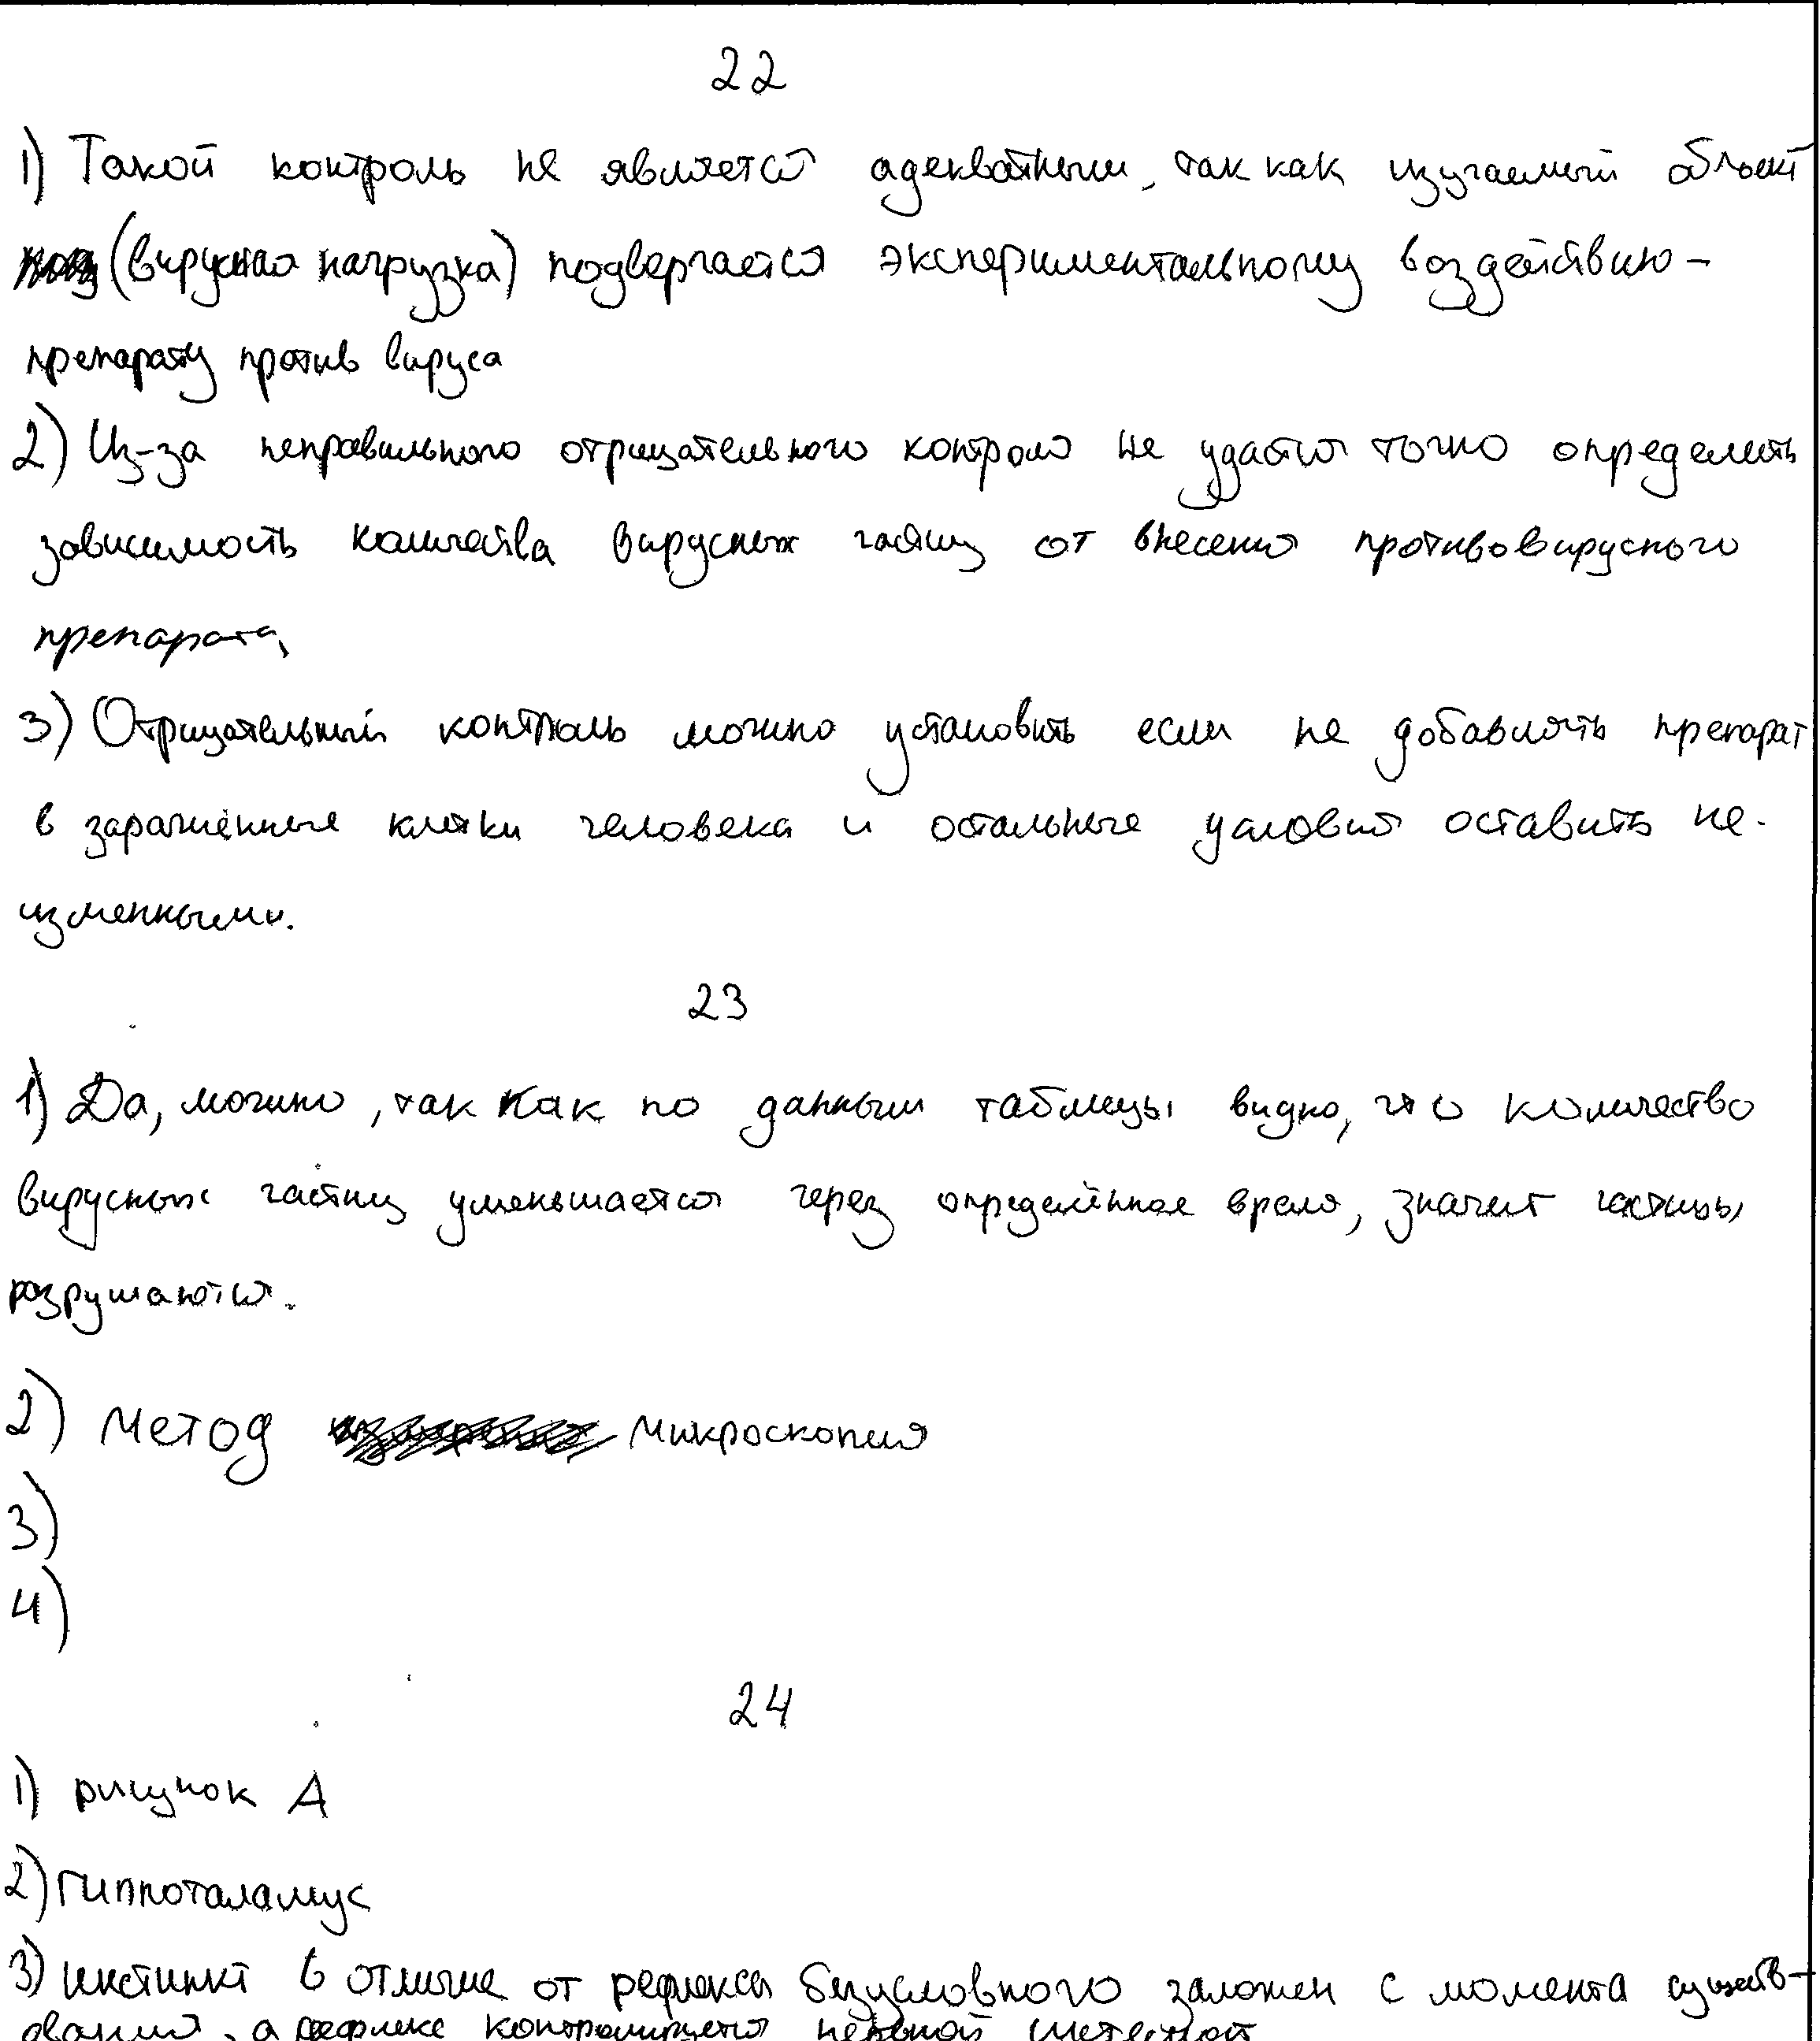 22
1) Такой контроль не является адекватным, так как изучаемый объект
(вирусная нагрузка) подвергается экспериментальному воздействию -
препарату против вируса
2) Из-за неправильного отрицательного контроля не удастся точно определить
зависимость количества вирусных частиц от внесения противовирусного
препарата,
3) Отрицательный контроль можно установить если не добавлять препарат
в заражённые клетки человека и остальные условия оставить не-
изменными.
23
1) Да, можно, так как по данным таблицы видно, что количество
вирусных частиц уменьшается через определённое время, значит частицы
разрушаются.
2) Метод микроскопия
3)
4)
24
1) рисунок А
2) Гиппоталамус
3) инстинкт в отличие от рефлекса безусловного заложен с момента существ-
ования, а рефлекс контролируется нервной системой